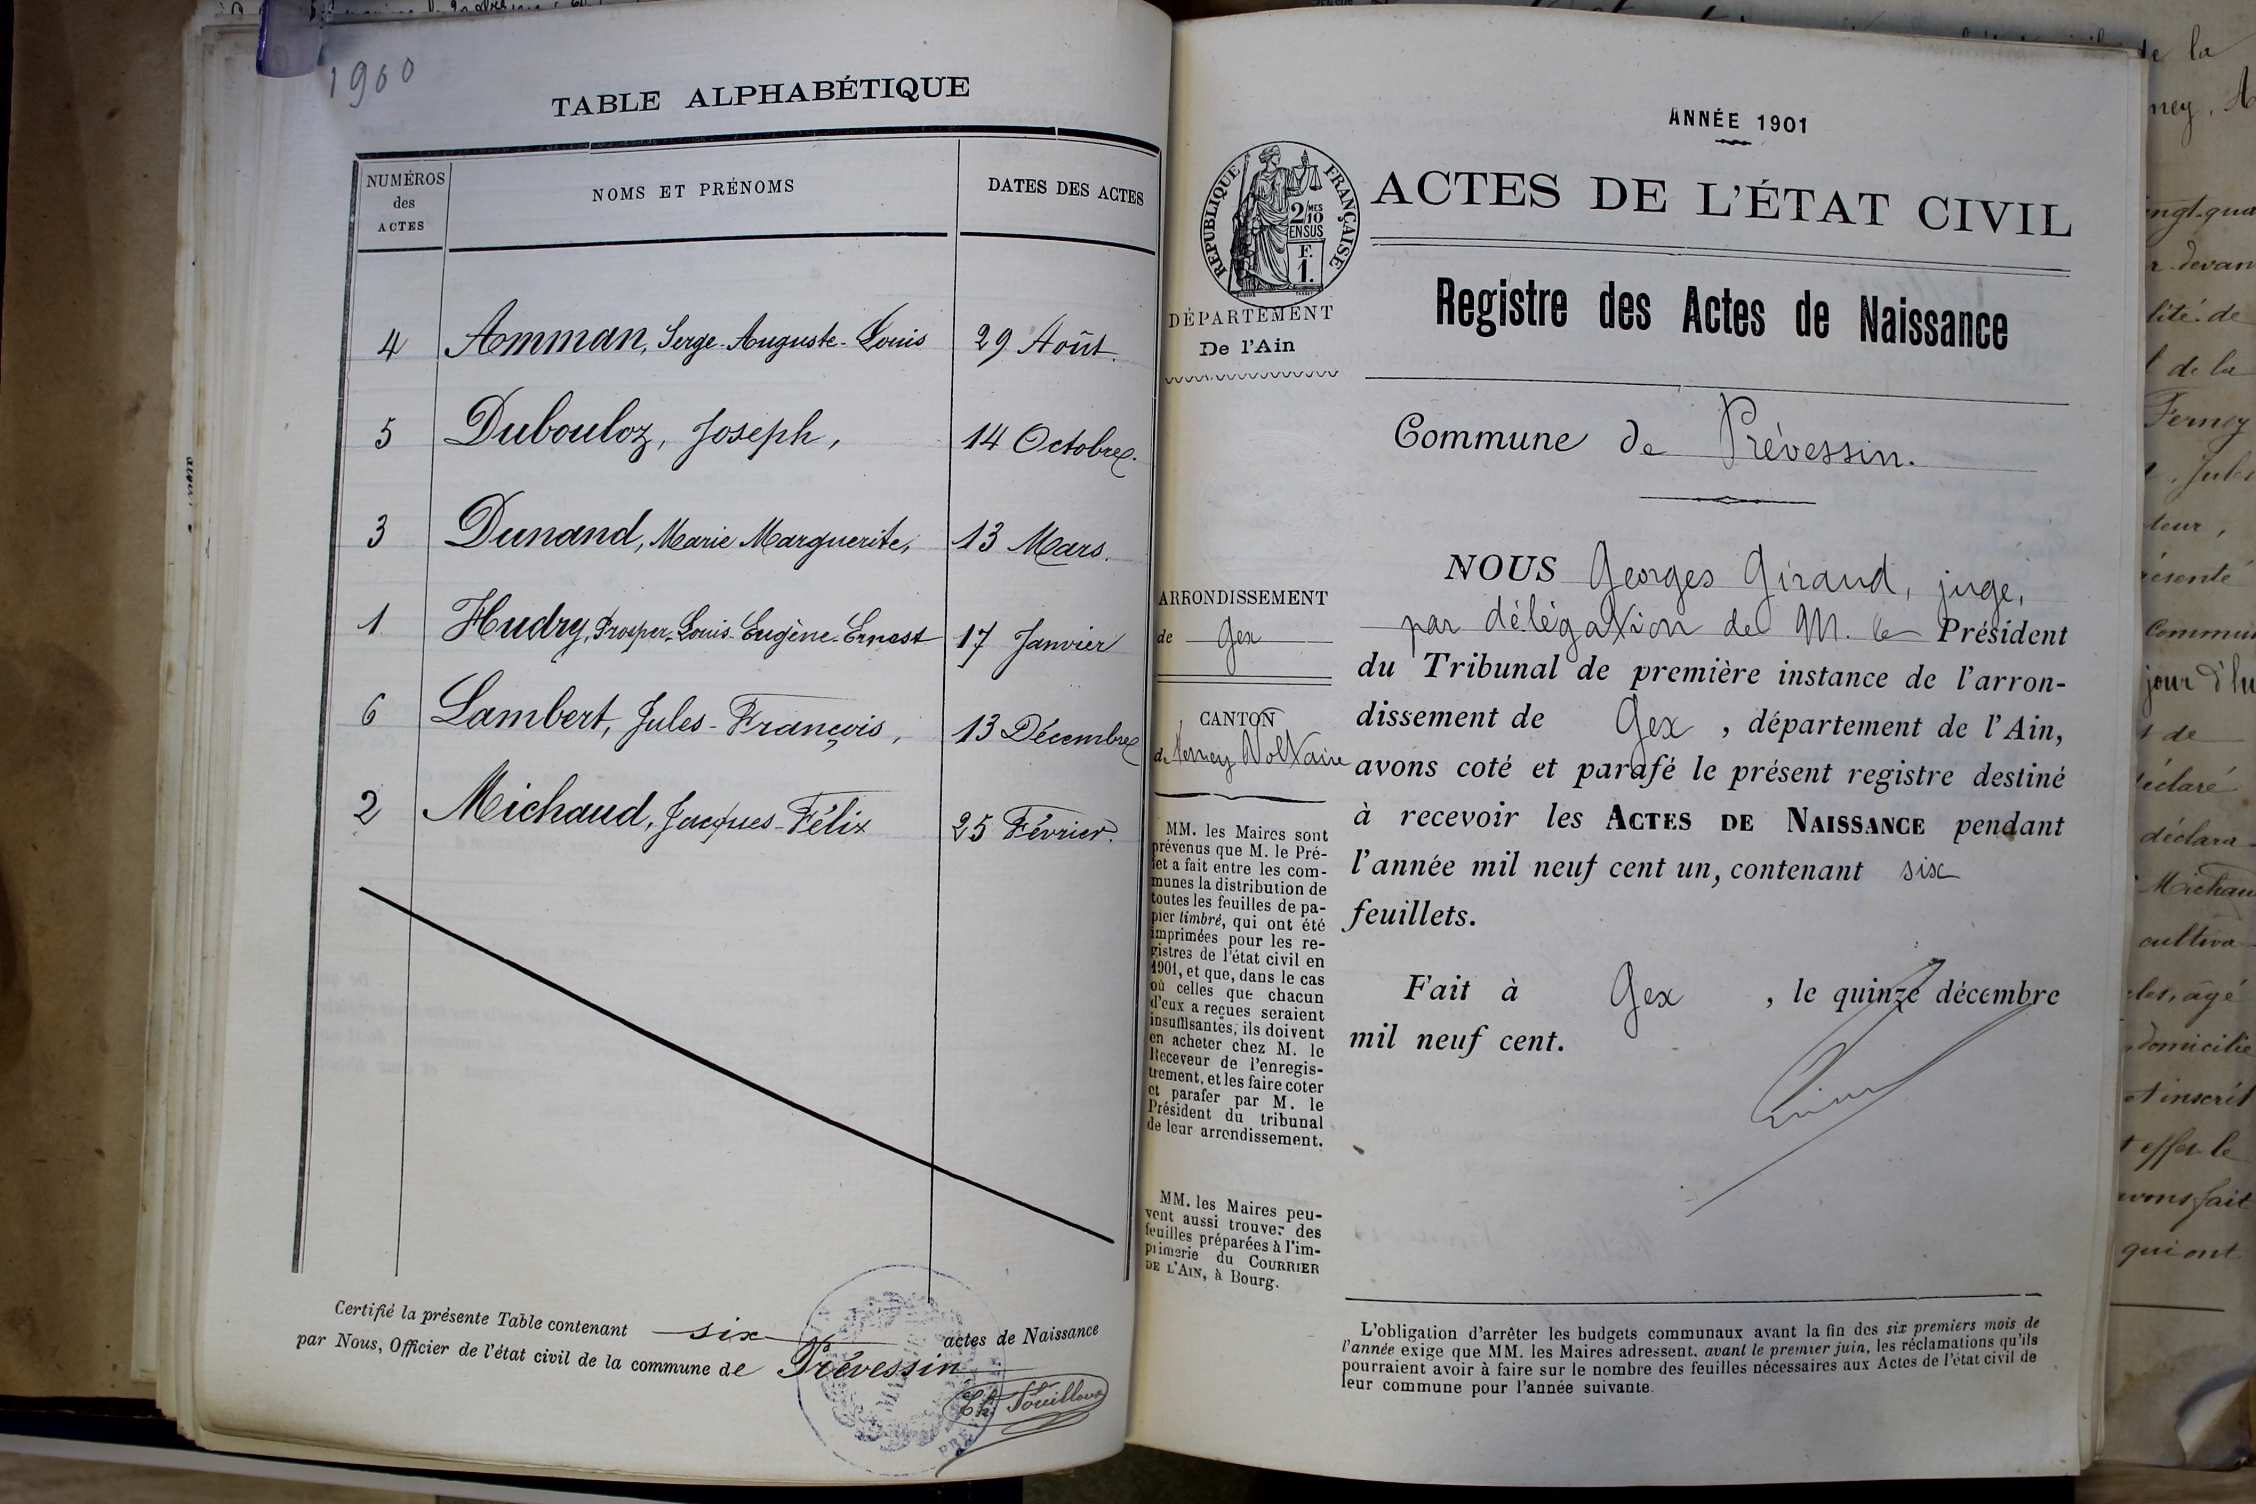 1900
TABLE ALPHABÉTIQUE
NUMÉROS
des
ACTES
NOMS ET PRÉNOMS
DATES DES ACTES
4 Amman, Serge-Auguste-Louis 29 Août.
5 Dubouloz, Joseph, 14 Octobre.
3 Dunand, Marie Marguerite, 13 Mars.
1 Hudry, Prosper-Louis-Eugène-Ernest 17 Janvier
6 Lambert, Jules-François, 13 Décembre
2 Michaud, Jacques-Félix 25 Février.
Certifié la présente Table contenant six actes de Naissance
par Nous, Officier de l'état civil de la commune de Prévessin
ANNÉE 1901
RÉPUBLIQUE FRANÇAISE
2/10 MES
EN SUS
F.
1.
ACTES DE L'ÉTAT CIVIL
DÉPARTEMENT
De l'Ain
Registre des Actes de Naissance
Commune de Prévessin.
ARRONDISSEMENT
de Gex
CANTON
de Ferney Voltaire
MM. les Maires sont
prévenus que M. le Pré-
fet a fait entre les com-
munes la distribution de
toutes les feuilles de pa-
pier timbré, qui ont été
imprimées pour les re-
gistres de l'état civil en
1901, et que, dans le cas
où celles que chacun
d'eux a reçues seraient
insuffisantes, ils doivent
en acheter chez M. le
Receveur de l'enregis-
trement, et les faire coter
et parafer par M. le
Président du tribunal
de leur arrondissement.
MM. les Maires peu-
vent aussi trouver des
feuilles préparées à l'im-
primerie du COURRIER
DE L'AIN, à Bourg.
NOUS Georges Giraud, juge,
par délégation de M. le Président
du Tribunal de première instance de l'arron-
dissement de Gex, département de l'Ain,
avons coté et parafé le présent registre destiné
à recevoir les ACTES DE NAISSANCE pendant
l'année mil neuf cent un, contenant six
feuillets.
Fait à Gex, le quinze décembre
mil neuf cent.
L'obligation d'arrêter les budgets communaux avant la fin des six premiers mois de
l'année exige que MM. les Maires adressent, avant le premier juin, les réclamations qu'ils
pourraient avoir à faire sur le nombre des feuilles nécessaires aux Actes de l'état civil de
leur commune pour l'année suivante.
de la
devan
de
de la
Ferney
Jules
teur,
résenté
commun
jour d'hu
de
déclaré
déclara-
Michaud
cultiva-
âgé
domicilié
inscrit
effet le
avons fait
qui ont